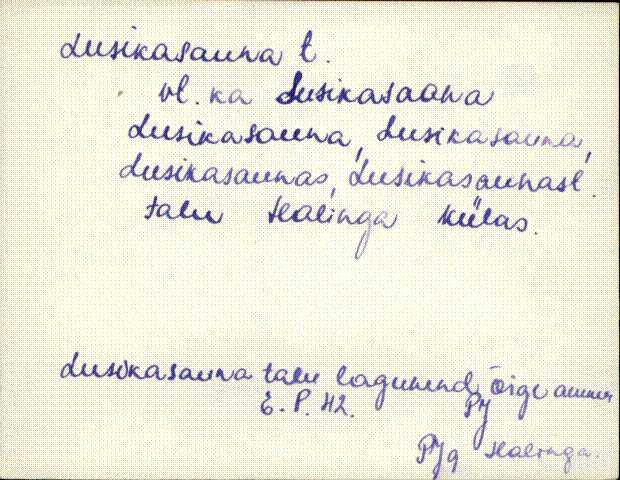 Lusikasauna t.
vl. ka Lusikasaana
Lusikasauna, Lusikasauna,
Lusikasaunas, Lusikasaunast.
talu Halinga külas.
Lusikasauna talu lagunend õige ammu
E. P. 42. PJ
PJg Halinga.